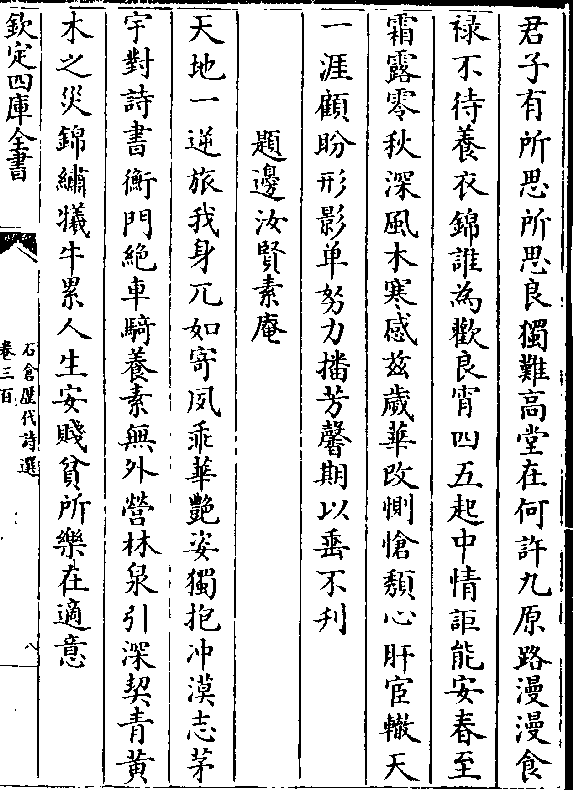 君子有所思所思良獨難高堂在何許九原路漫漫食
禄不待養衣錦誰為歡良宵四五起中情詎能安春至
霜露零秋深風木寒感兹歲華改惻愴頽心肝宦轍天
一涯顧盼形影单努力播芳馨期以垂不刋
題邊汝賢素庵
天地一逆旅我身兀如寄夙乖華艶姿獨抱冲漠志茅
宇對詩書衡門絶車騎養素無外營林泉引深契青黄
木之災錦繡犠牛累人生安賤貧所樂在適意
欽定四庫全書
石倉歷代詩選
卷三百
八